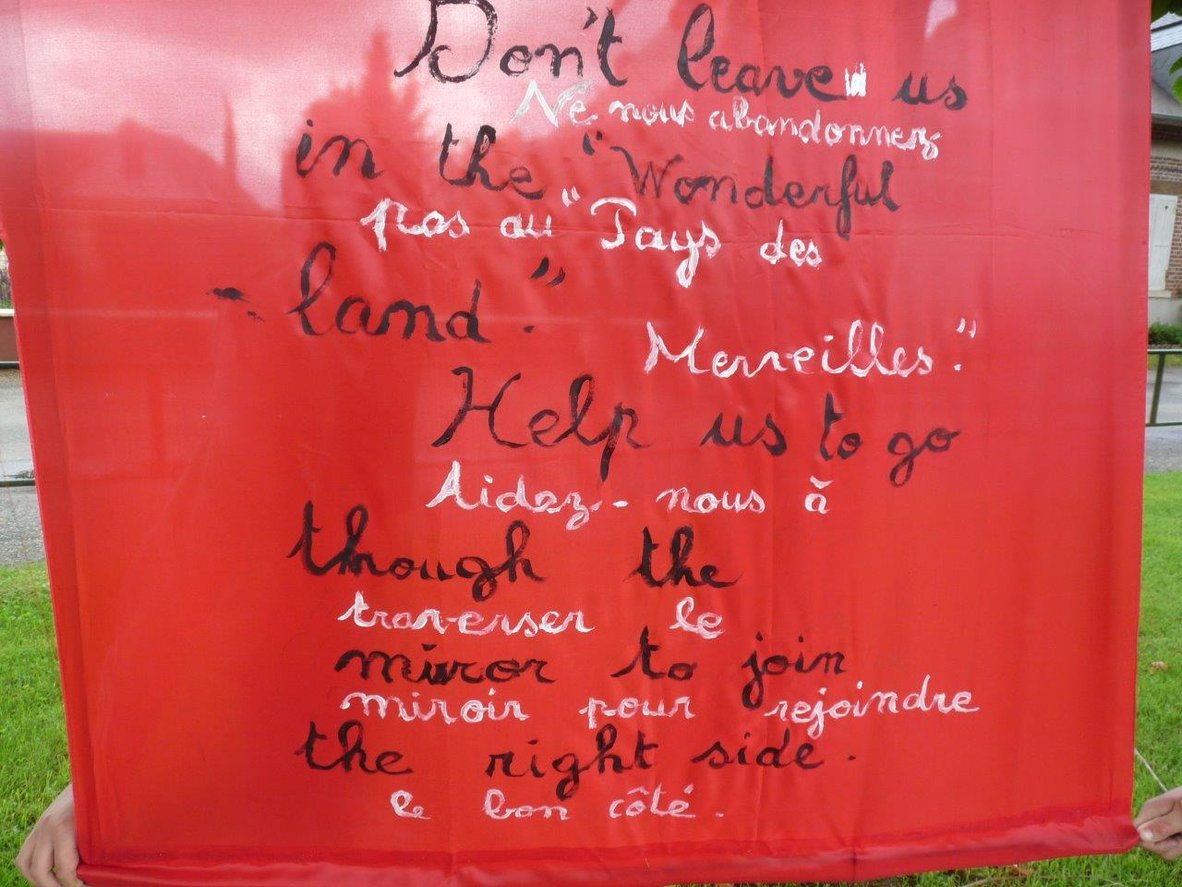 Don't leave us
Ne nous abandonnez
in the "Wonderful
pas au "Pays des
land."
Merveilles."
Help us to go
Aidez-nous à
though the
traverser le
miror to join
miroir pour rejoindre
the right side.
le bon côté.